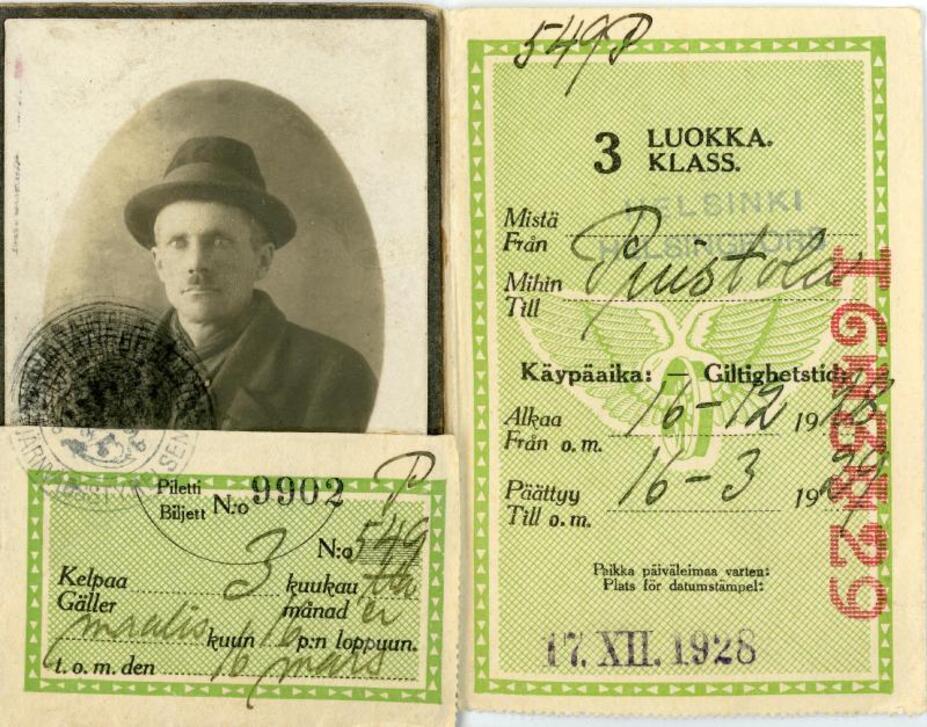 Piletti
Biljett N:o 9902
P
N:o 549
Kelpaa 3 kuukautta
Gäller månader
kuun 16 p:n loppuun.
t. o. m. den 16 mars
549 P
3 LUOKKA.
KLASS.
HELSINKI
HELSINGFORS
Mistä
Från
Puistola
Mihin
Till
Käypäaika: — Giltighetstid:
Alkaa 16-12 1928
Från o. m.
Päättyy 16-3 1929
Till o. m.
Paikka päiväleimaa varten:
Plats för datumstämpel:
17. XII. 1928